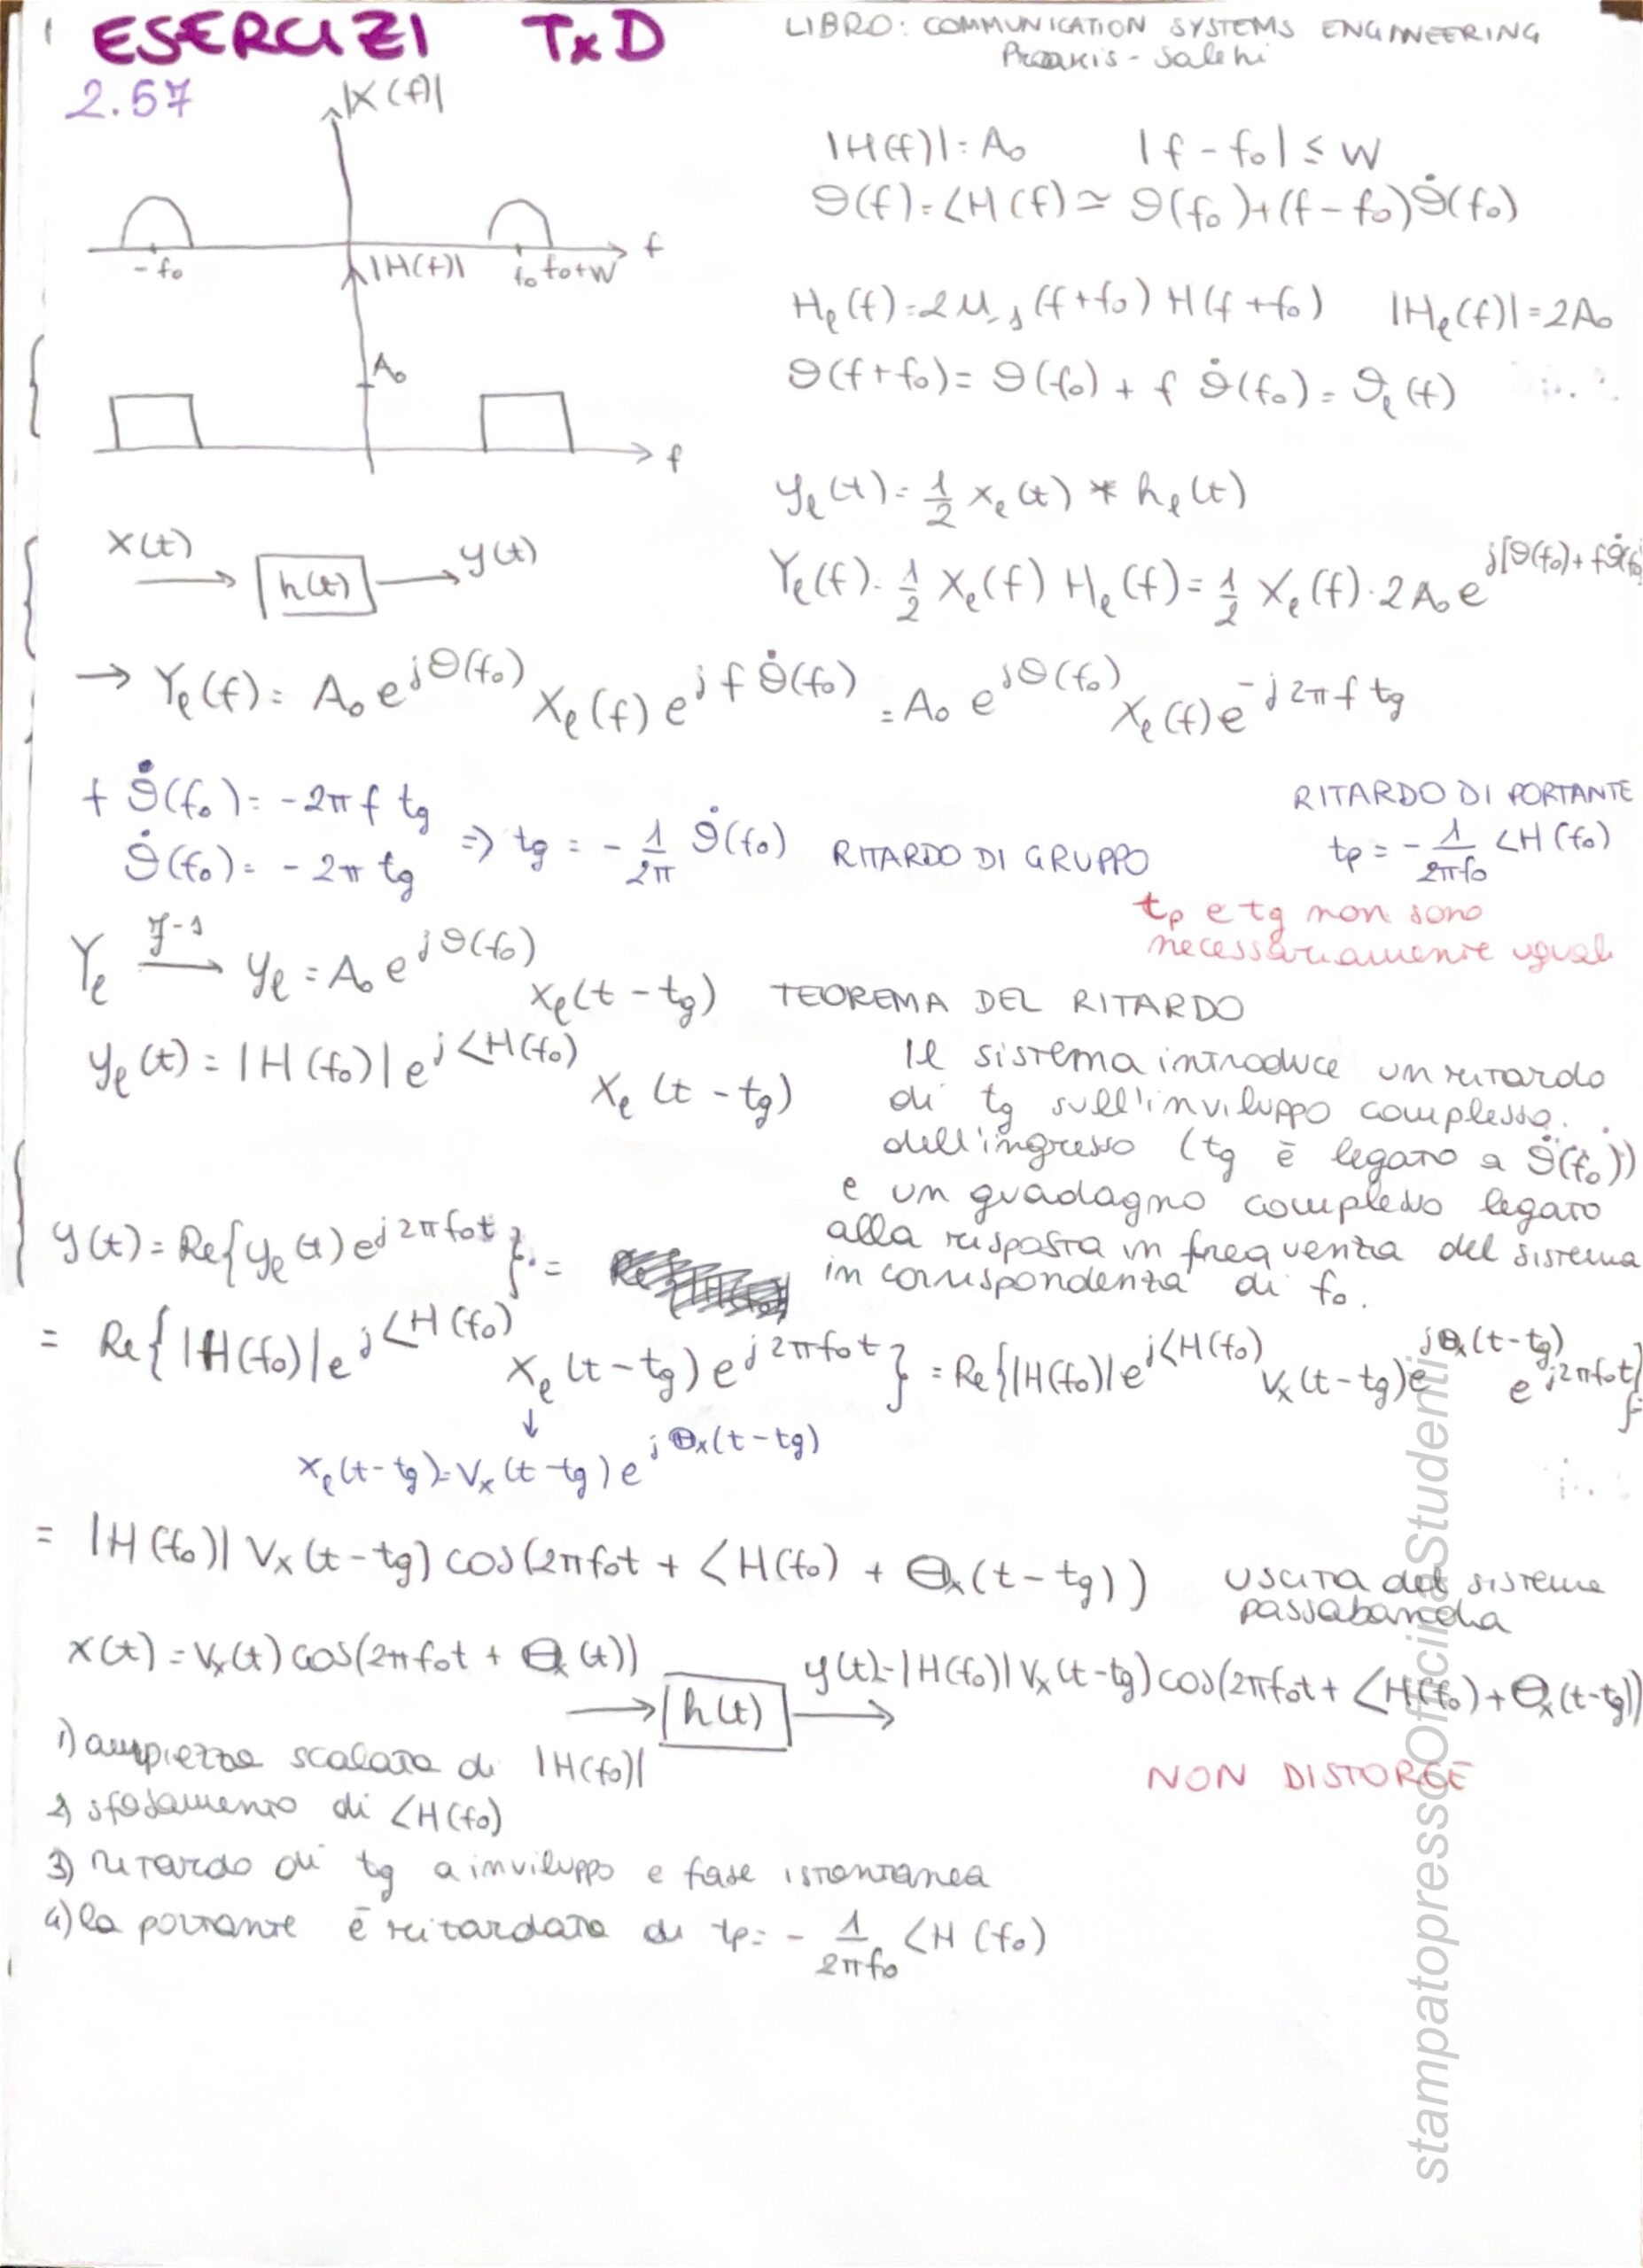 ESERCIZI TxD
LIBRO: COMMUNICATION SYSTEMS ENGINEERING
Proakis - Salehi
2.57
|X(f)|
-f₀
f₀ f₀+W
f
|H(f)|
A₀
f
|H(f)| = A₀ |f - f₀| ≤ W
ϑ(f) = ∠H(f) ≃ ϑ(f₀) + (f - f₀) ϑ̇(f₀)
Hₑ(f) = 2 u₋₁(f+f₀) H(f+f₀) |Hₑ(f)| = 2A₀
ϑ(f+f₀) = ϑ(f₀) + f ϑ̇(f₀) = ϑₑ(f)
yₑ(t) = 1/2 xₑ(t) * hₑ(t)
x(t) → h(t) → y(t)
Yₑ(f) = 1/2 Xₑ(f) Hₑ(f) = 1/2 Xₑ(f) · 2A₀ e^{j[ϑ(f₀) + f ϑ̇(f₀
→ Yₑ(f) = A₀ e^{jϑ(f₀)} Xₑ(f) e^{j f ϑ̇(f₀)} = A₀ e^{jϑ(f₀)} Xₑ(f) e^{-j2πf tg}
f ϑ̇(f₀) = -2πf tg
ϑ̇(f₀) = -2π tg
⇒ tg = - 1/2π ϑ̇(f₀) RITARDO DI GRUPPO
RITARDO DI PORTANTE
tp = - 1/2πf₀ ∠H(f₀)
tp e tg non sono
necessariamente uguali
Yₑ F⁻¹→ yₑ = A₀ e^{jϑ(f₀)} xₑ(t - tg) TEOREMA DEL RITARDO
yₑ(t) = |H(f₀)| e^{j∠H(f₀)} xₑ(t - tg)
Il sistema introduce un ritardo
di tg sull'inviluppo complesso
dell'ingresso (tg è legato a ϑ̇(f₀))
e un guadagno complesso legato
alla risposta in frequenza del sistema
in corrispondenza di f₀.
y(t) = Re{yₑ(t) e^{j2πf₀t}} =
= Re{|H(f₀)| e^{j∠H(f₀)} xₑ(t-tg) e^{j2πf₀t}} = Re{|H(f₀)| e^{j∠H(f₀)} Vx(t-tg) e^{jΘx(t-tg)} e^{j2πf₀t}}
↓
xₑ(t-tg) = Vx(t-tg) e^{jΘx(t-tg)}
= |H(f₀)| Vx(t-tg) cos(2πf₀t + ∠H(f₀) + Θx(t-tg)) uscita del sistema
passabanda
x(t) = Vx(t) cos(2πf₀t + Θx(t))
→ h(t) →
y(t) = |H(f₀)| Vx(t-tg) cos(2πf₀t + ∠H(f₀) + Θx(t-tg))
1) ampiezza scalata di |H(f₀)|
NON DISTORCE
2) sfasamento di ∠H(f₀)
3) ritardo di tg a inviluppo e fase istantanea
4) la portante è ritardata di tp = - 1/2πf₀ ∠H(f₀)
stampatopressoOfficinaStudenti